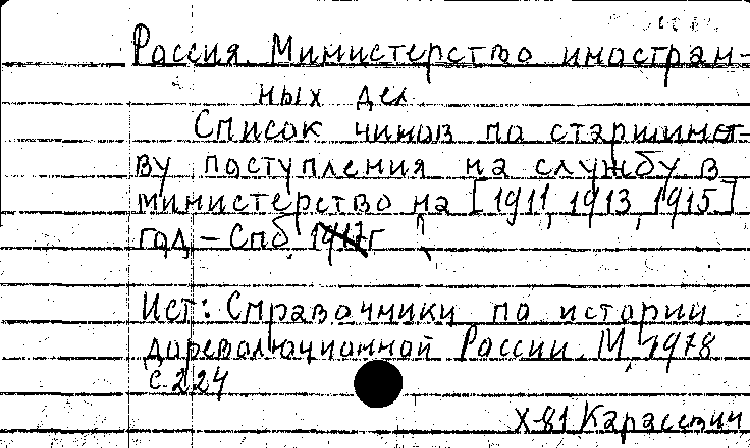 Россия. Министерство иностран-
ных дел.
Список чинов по старшинст-
ву поступления на службу в
министерство на [1911, 1913, 1915]
год – Спб, 1917г
Ист: Справочники по истории
дореволюционной России. М, 1978
с. 224
X-81 Карасезич